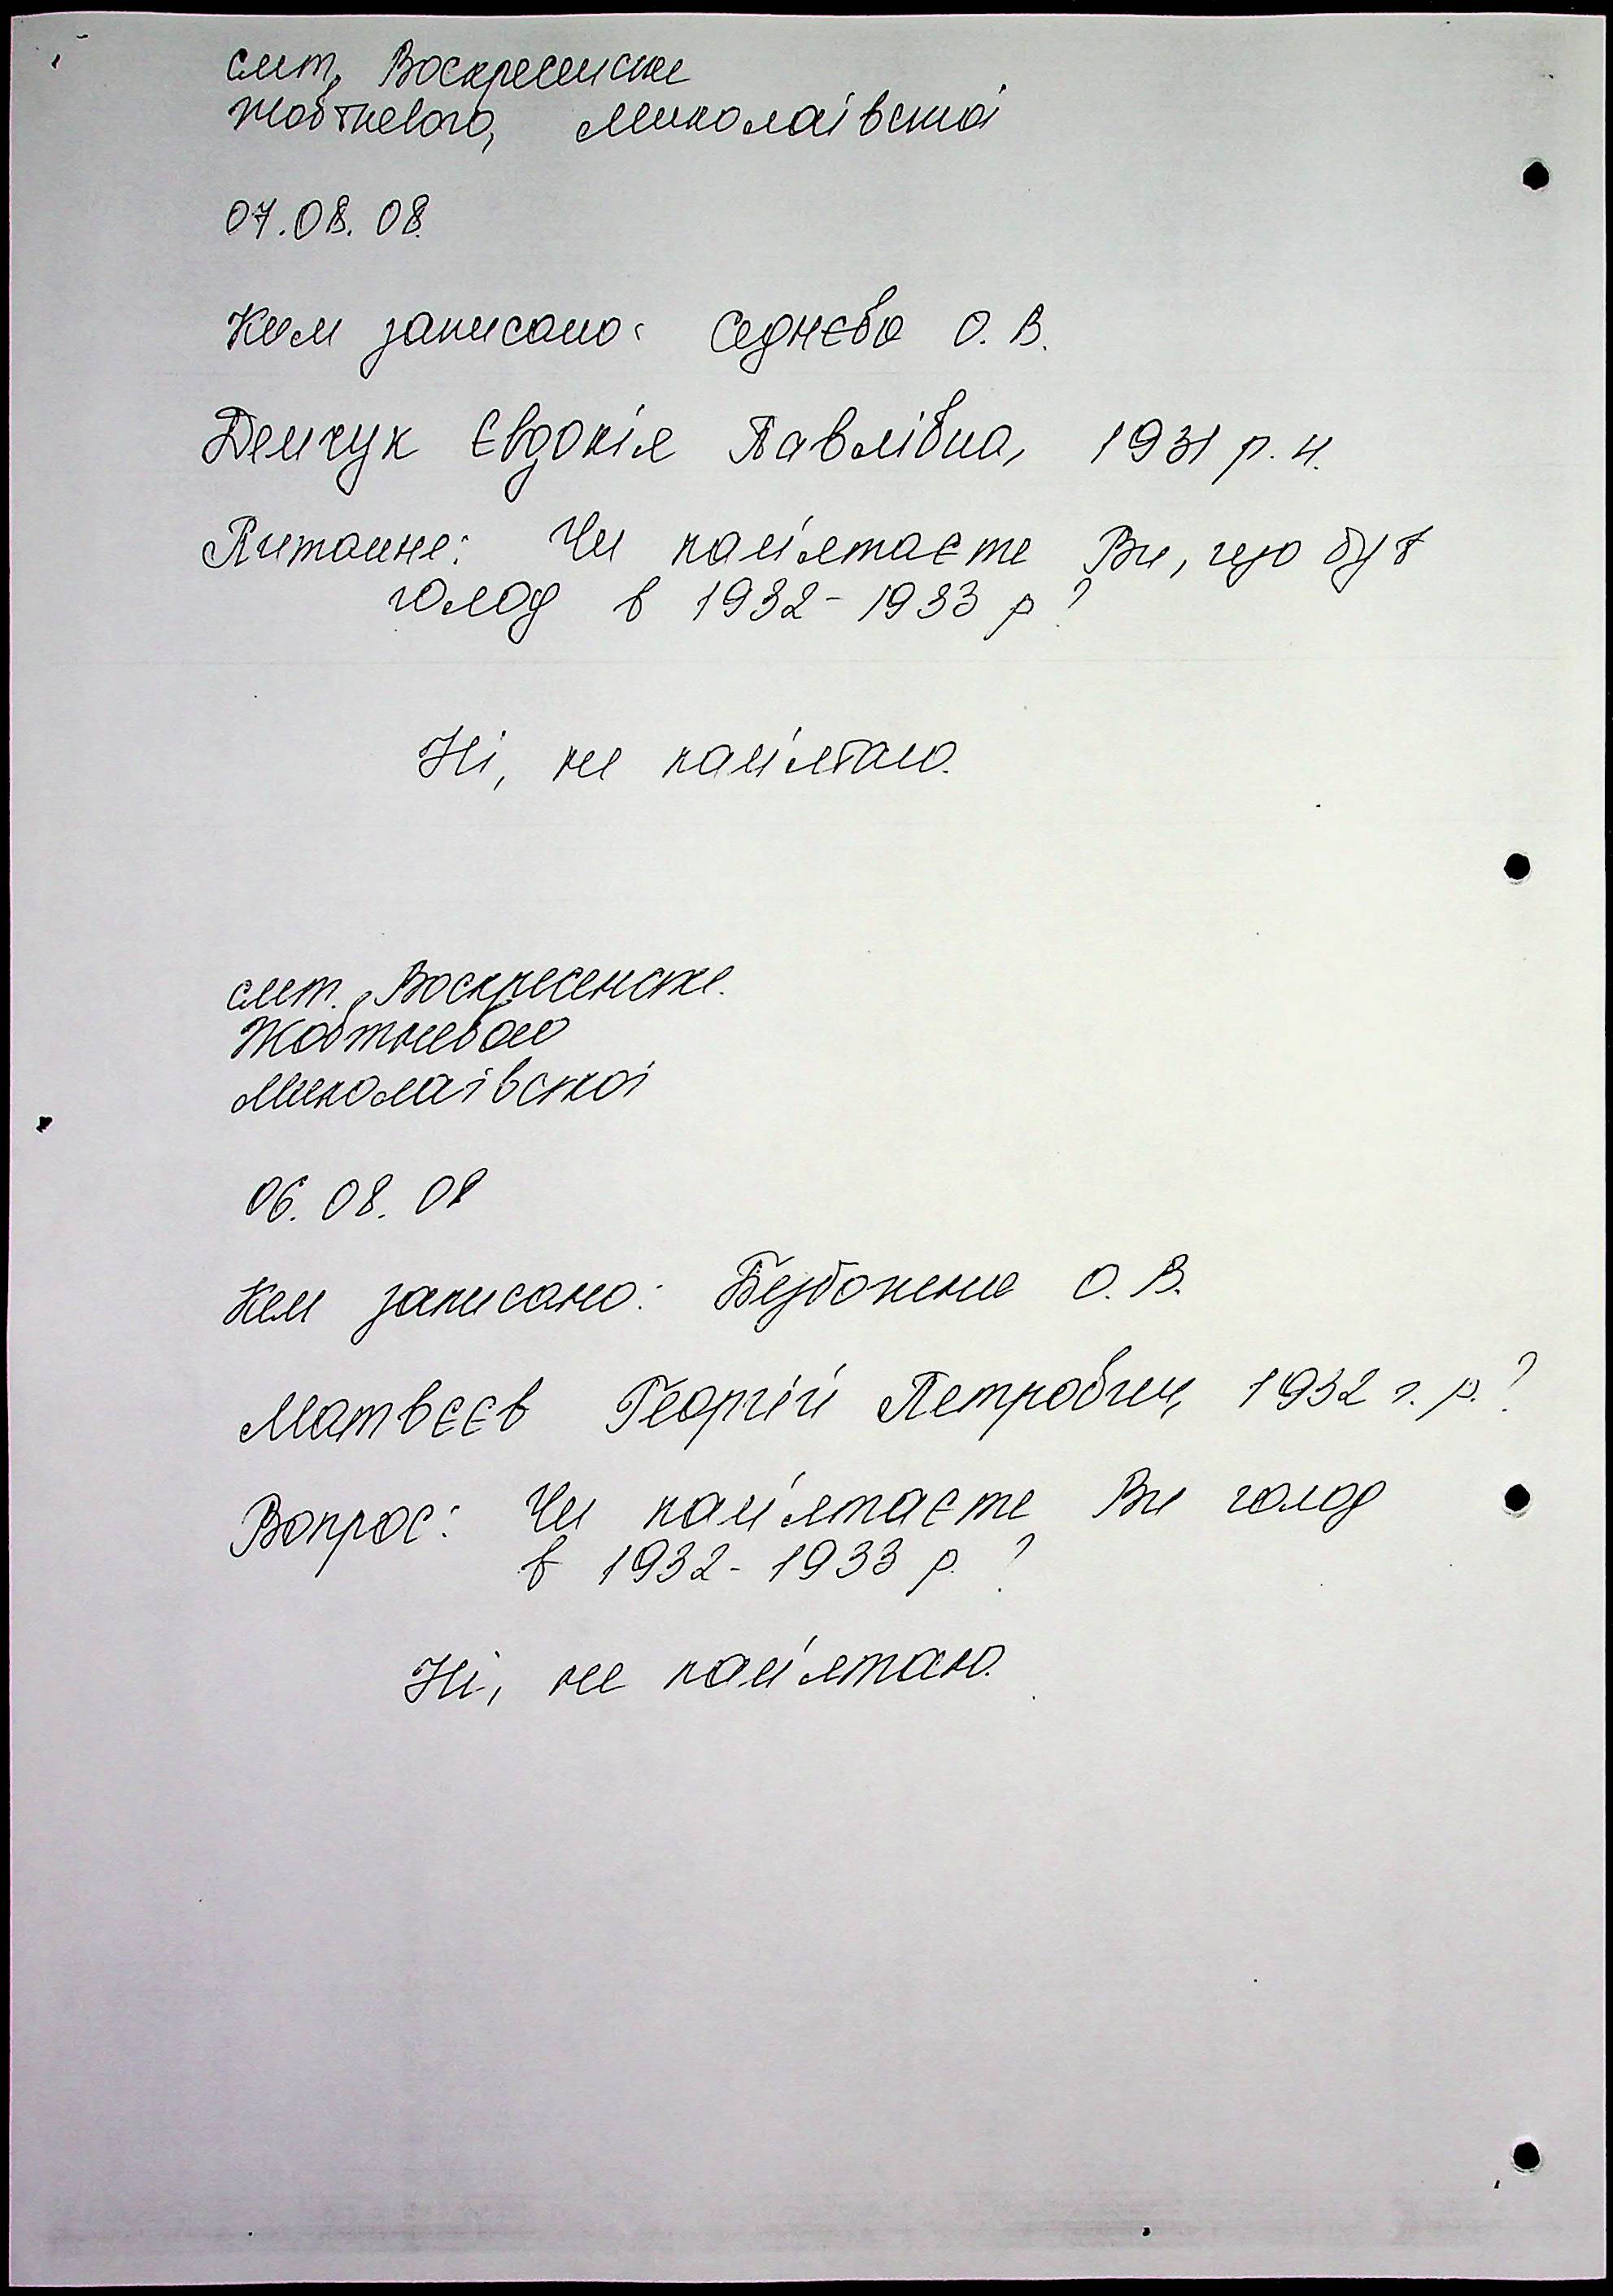 смт. Воскресенське
Жовтневого, Миколаївської
07.08.08.
Кем записано: Седнєва О. В.
Демчук Євдокія Павлівна, 1931 р. н.
Питання: Чи пам'ятаєте Ви, що був
голод в 1932-1933 р?
Ні, не пам'ятаю.
смт. Воскресенське.
Жовтневого
Миколаївської
06.08.08
Кем записано: О. В.
Матвєєв Георгій Петрович, 1932 г. р.?
Вопрос: Чи пам'ятаєте Ви голод
в 1932-1933 р.?
Ні, не пам'ятаю.